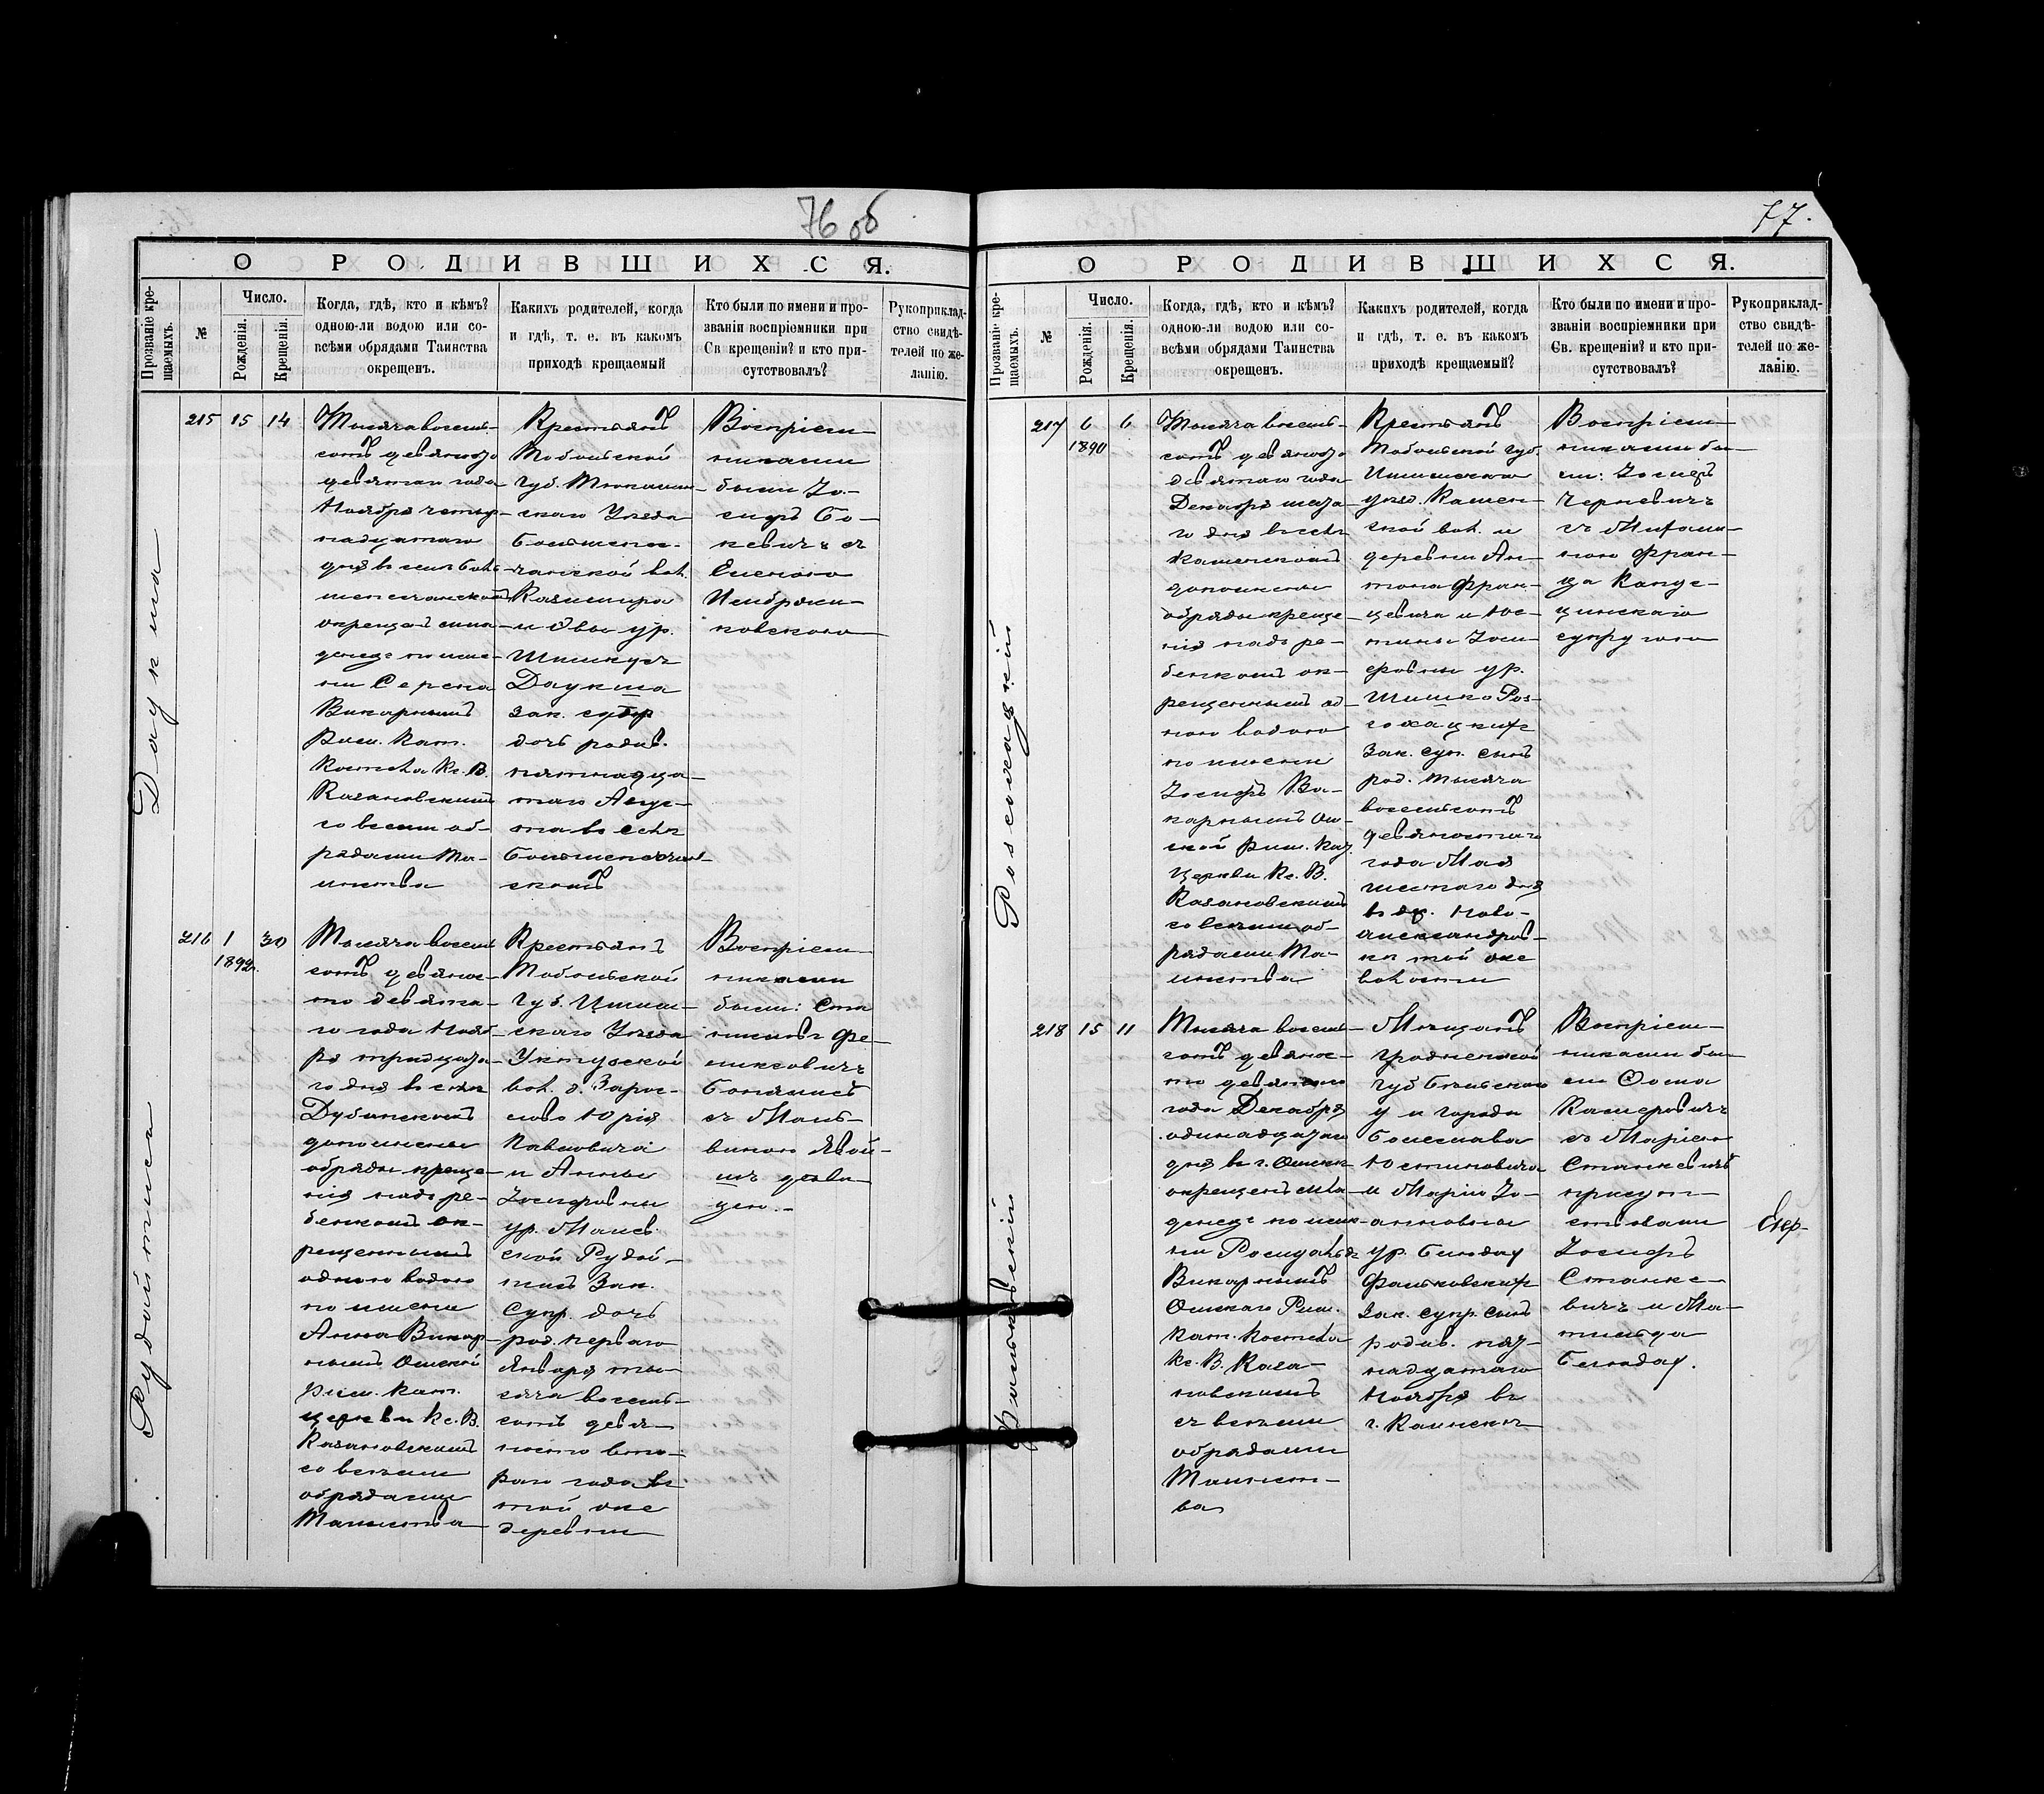 76 об
О РОДИВШИХСЯ.
Прозваніе кре-
щаемыхъ.
№
Число.
Рожденія.
Крещенія.
Когда, гдѣ, кто и кѣмъ?
одною-ли водою или со-
всѣми обрядами Таинства
окрещен.
Какихъ родителей, когда
и гдѣ, т. е. въ какомъ
приходѣ крещаемый
Кто были по имени и про-
званіи воспріемники при
Св крещеніи? и кто при-
сутствовалъ?
Рукоприклад-
ство свидѣ-
телей по же-
ланію.
Даукша
215
15
14
Тысяча восемь-
сотъ девяносто
девятаго года
Ноября четыр-
надцатаго
дня въ селѣ Боль-
окрещенъ мла-
денецъ по име-
ни
Викарнымъ
Рим. Кат.
Костела Кс. В.
Казановскимъ
со всеми об-
рядами Та-
инства
Крестьянъ
Тобольской
губ. Тюкалин-
скаго Уѣзда
вол.
Казимира
и Евы ур.
Даукша
зак. супр
дочь родив.
пятнадца-
таго Авгус-
та въ селѣ
скомъ
Воспріем-
никами
были Іо-
сифъ Бо-
невичъ съ
Еленою
Рудайтисъ
216
1
1892.
30
Тысяча восемь
сотъ девянос-
то девята-
го года Нояб-
ря тридцата-
го дня въ селѣ
Дубинскомъ
дополнены
обряды креще-
нія надъ ре-
бенкомъ ок-
рещеннымъ
одною водою
по имени
Анна Викар-
нымъ Омской
Рим. Кат.
церкви Кс. В.
Казановскимъ
со всеми
обрядами
Таинства
Крестьянъ
Тобольской
губ. Ишим-
скаго Уѣзда
Уктузской
вол. д. Зарос-
лово Юрія
Павловича
и Анны
Іосифовны
ур.
Зак.
Супр. дочь
род. перваго
Января ты-
сяча восемь-
сотъ девя-
носто вто-
раго года въ
той же
деревни
Воспріем-
никами
были: Ста
ниславъ Фе-
ликсовичъ
съ Маль-
виною
деви-
цею.
77.
О РОДИВШИХСЯ.
Прозваніе кре-
щаемыхъ.
№
Число.
Рожденія.
Крещенія.
Когда, гдѣ, кто и кѣмъ?
одною-ли водою или со-
всѣми обрядами Таинства
окрещен.
Какихъ родителей, когда
и гдѣ, т. е. въ какомъ
приходѣ крещаемый?
Кто были по имени и про-
званіи воспріемники при
Св. крещеніи? и кто при-
сутствовалъ?
Рукоприклад-
ство свидѣ-
телей по же-
ланію.
217
6
1890
6
Тысяча восемь-
сотъ девяносто
девятаго года
Декабря шеста-
го дня въ селѣ
Каменскомъ
дополнены
обряды креще-
нія надъ ре-
бенкомъ ок-
рещеннымъ од-
ною водою
по имени
Іосифъ Ви-
карнымъ Ом-
ской Рим. Кат.
церкви Кс. В.
Казановскимъ
со всеми об-
рядами Та-
инства
Крестьянъ
Тобольской губ.
Ишимскаго
уѣзд. Камен-
ской вол. и
деревни Ан-
тона Фран-
цевича и Юс-
тины Іоси-
фовны ур.
Шишко Роз-
Зак. суп. сынъ
род. тысяча
восемьсотъ
девяностаго
года Мая
шестаго дня
въ дер. Ново-
александров-
кѣ той же
волости
Воспріем-
никами бы-
ли: Іосифъ
Черневичъ
съ
Фран-
ца
супругою
Фальковскій
218
15
11
Тысяча восемь-
сотъ девянос-
то девятаго
года Декабря
одинадцатаго
дня въ г. Омскѣ
окрещенъ мла-
денецъ по име-
ни Ромуальдъ
Викарнымъ
Омскаго Рим.
Кат. Костела
Кс. В. Каза-
новскимъ
съ всеми
обрядами
Таинст-
ва
Мѣщанъ
Гродненской
губ Бѣльскаго
у и города
Болеслава
Юстиновича
и Маріи Іо-
анновны
ур.
Фальковскихъ
Зак. супр. сынъ
родив. пят-
надцатаго
Ноября въ
г. Каинскѣ
Воспріем-
никами бы-
ли Ѳома
съ Маріею
Станкевичъ
присут-
ствовали
Іосифъ
Станке-
вичъ и Ма-
тильда